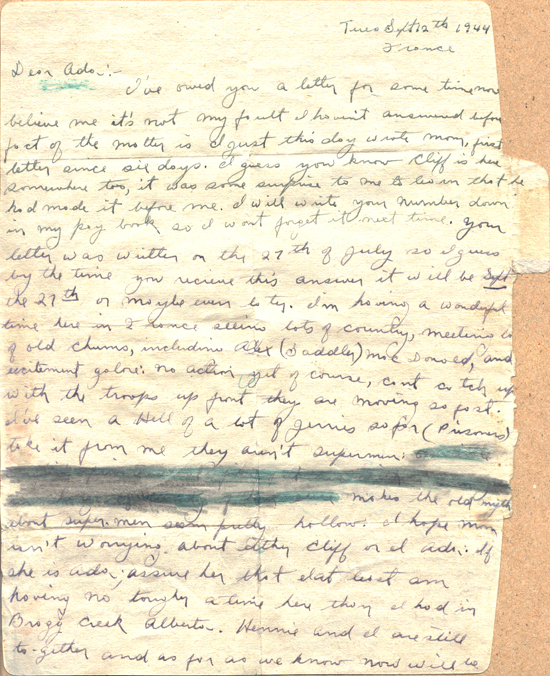 Tues Sept 12th 1944
France
Dear Ada:-
I've owed you a letter for some time now
believe me it's not my fault I havint answered before
fact of the matter is I just this day wrote mom, first
letter since six days. I guess you know Cliff is here
somewhere too, it was some surprise to me to learn that he
had made it before me. I will write your number down
in my pay book so I wont forget it next time. Your
letter was written on the 27th of July so I guess
by the time you recieve this answer it will be Sept
the 27th or maybe even later. I'm having a wonderful
time here in France seeing lots of country, meeting lots
of old chums, including Alex (Saddler) Mac Donald, and
excitement galore: no action yet of course, cant catch up
with the troops up front they are moving so fast.
I've seen a Hell of a lot of jerries so far (Prisoners)
take it from me they ain't supermen:
makes the old myth
about super-men seem pretty hollow: I hope mom
isn't worrying about either Cliff or I ada: If
she is ada, assure her that I at least am
having no tougher a time here than I had in
Creek Alberta. Hennie and I are still
to-gether and as far as we know now will be